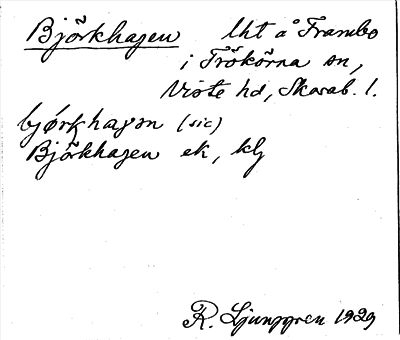 Björkhagen lht å Frambo
i Trökörna sn,
Viste hd, Skarab. l.
bjørkhagen (sic)
Björkhagen ek, klj
R. Ljunggren 1929